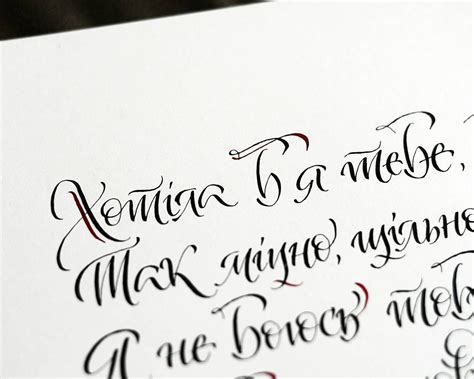 Хотіла б я тебе,
Так міцно, щільно
Я не боюсь тоб